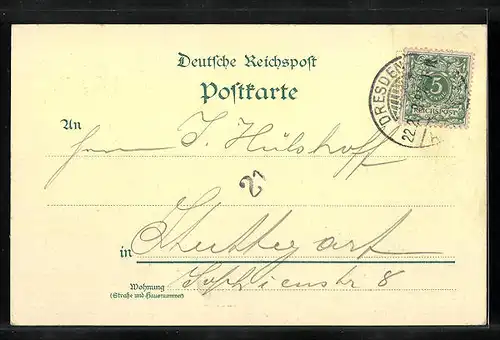 Deutsche Reichspost
Postkarte
5
REICHSPOST
DRESDEN
An
Herrn J. Hülshoff
21
in Stuttgart
Wohnung
(Straße und Hausnummer)
Sophienstr 8